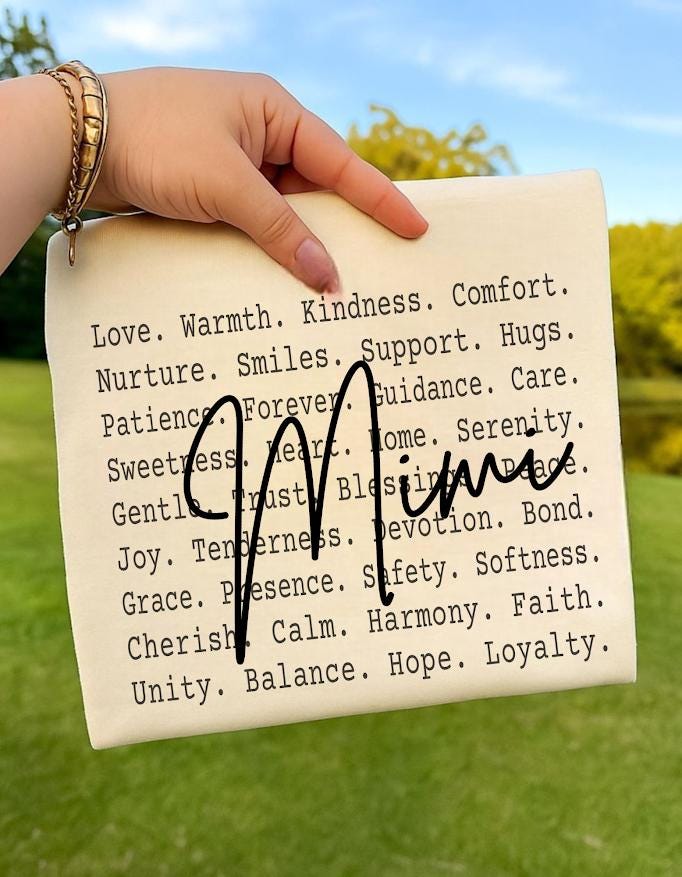 Love. Warmth. Kindness. Comfort.
Nurture. Smiles. Support. Hugs.
Patience. Forever. Guidance. Care.
Sweetness. Heart. Home. Serenity.
Gentle. Trust. Blessing. Peace.
Joy. Tenderness. Devotion. Bond.
Grace. Presence. Safety. Softness.
Cherish. Calm. Harmony. Faith.
Unity. Balance. Hope. Loyalty.
Mimi